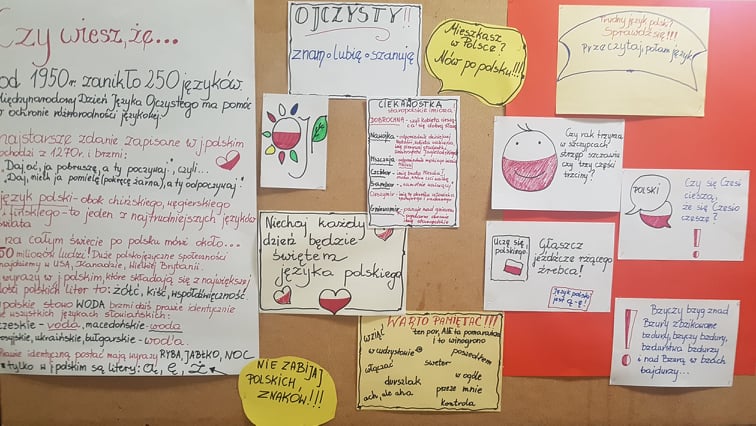 Czy wiesz, że...
od 1950 r. zanikło 250 języków
Międzynarodowy Dzień Języka Ojczystego ma pomóc
w ochronie różnorodności językowej.
najstarsze zdanie zapisane w j. polskim
pochodzi z 1270 r. i brzmi:
"Daj ać, ja pobruszę, a ty poczywaj", czyli...
"Daj, niech ja pomielę (pokręcę żarna), a ty odpoczywaj".
język polski - obok chińskiego, węgierskiego
i fińskiego - to jeden z najtrudniejszych języków
świata
na całym świecie po polsku mówi około...
50 milionów ludzi! Duże polskojęzyczne społeczności
znajdziemy w USA, Kanadzie, Wielkiej Brytanii.
wyrazy w j. polskim, które składają się z największej
ilości polskich liter to: żółć, kiść, współdźwięczność
polskie słowo WODA brzmi dziś prawie identycznie
we wszystkich językach słowiańskich:
czeskie - voda, macedońskie - woda
rosyjskie, ukraińskie, bułgarskie - wod'a.
Prawie identyczną postać mają wyrazy RYBA, JABŁKO, NOC
tylko w j. polskim są litery: ą, ę, ż
OJCZYSTY!!
znam • lubię • szanuję
Mieszkasz
w Polsce?
Mów po polsku!!!
Trudny język polski?
Sprawdź się!!!
Przeczytaj, połam język
j
CIEKAWOSTKA
staropolskie imiona
DOBROCHNA - czyli kobieta
Nawojka
Mszczuja
Czcibor
Sambor
Cieszymir
Gniewomir
Czy rak trzyma
w szczypcach
strzęp szczawiu
czy trzy części
trzciny?
POLSKI
Czy się Czesi
cieszą,
że się Czesio
czesze?
!
Niechaj każdy
dzień będzie
świętem
języka polskiego
Uczę się
polskiego
Głaszcz
jeźdźcze rżącego
źrebca!
Język polski
jest ą-ę!
WARTO PAMIĘTAĆ!!!
wziąć
ten por, Ali ta pomarańcza
i to winogrono
w cudzysłowie
poszedłem
włączać
sweter
w ogóle
durszlak
przeze mnie
ach, ale aha
kontrola
!
Bzyczy bzyg znad
Bzury zbzikowane
bzdury, bzyczy bzdury,
bzdurstwa bzdurzy
i nad Bzurą w bzach
bajdurzy...
NIE ZABIJAJ
POLSKICH
ZNAKÓW!!!